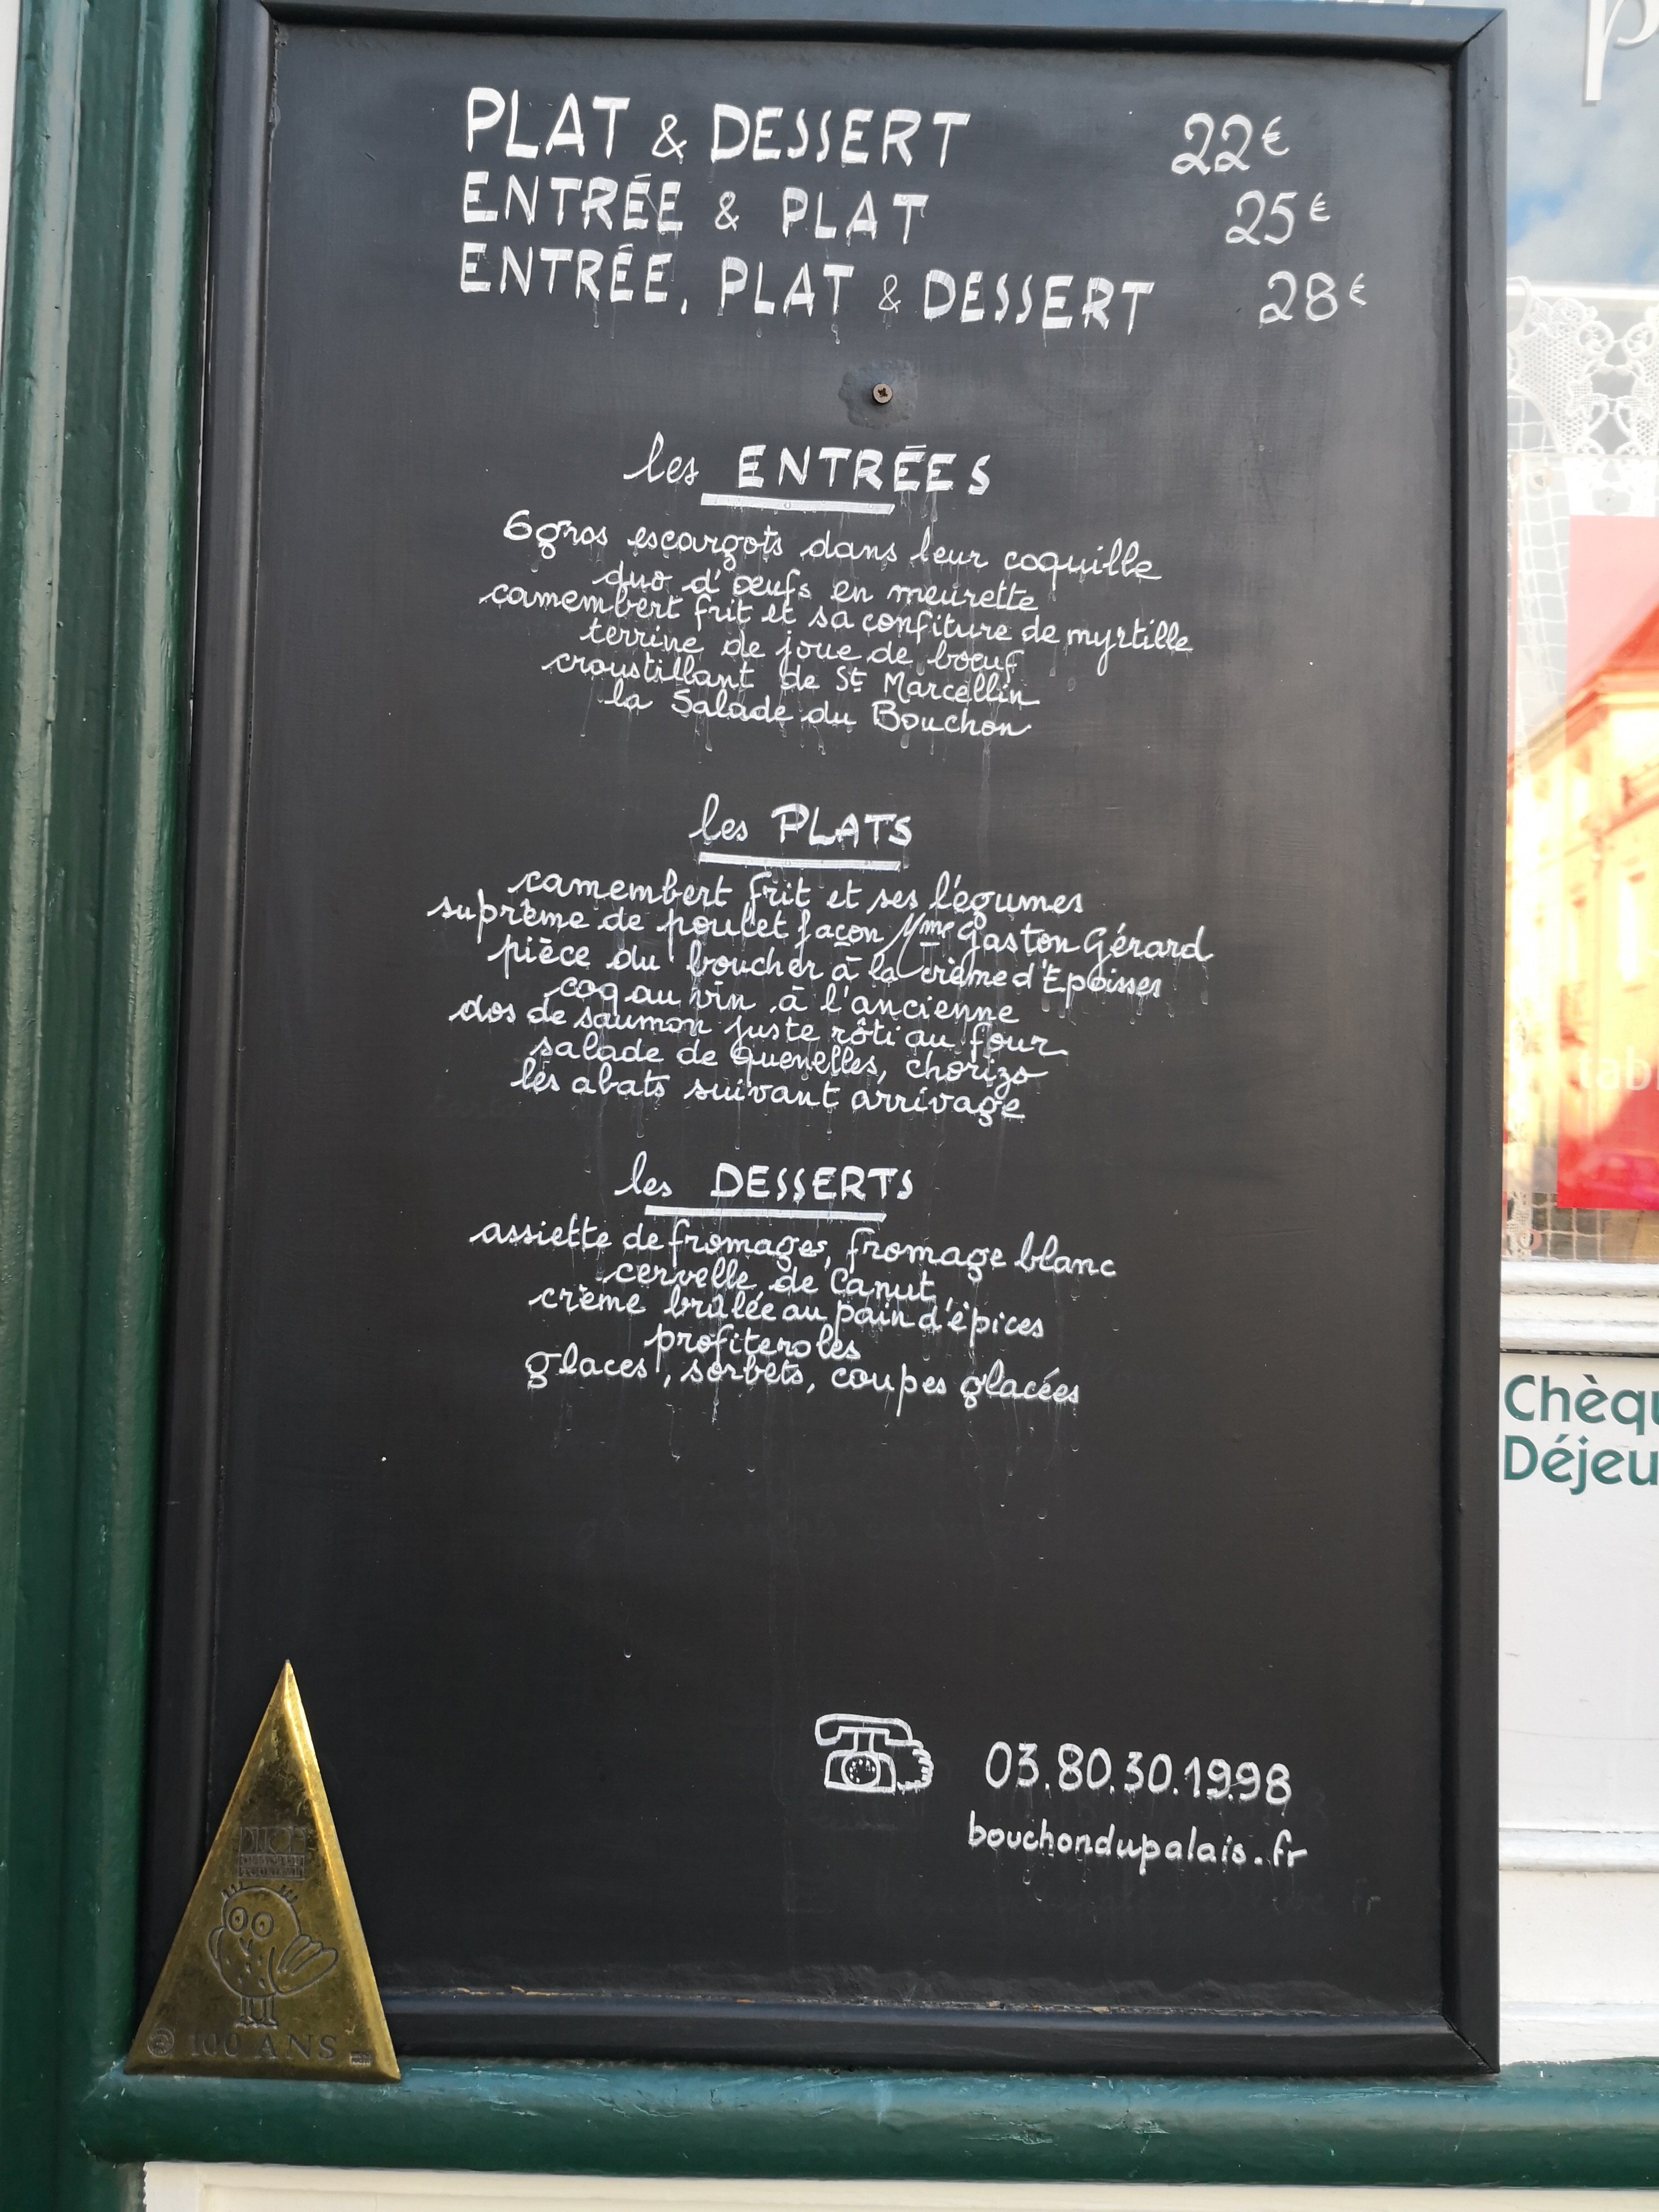 PLAT & DESSERT 22€
ENTRÉE & PLAT 25€
ENTRÉE, PLAT & DESSERT 28€
les ENTRÉES
6 gros escargots dans leur coquille
duo d'œufs en meurette
camembert frit et sa confiture de myrtille
terrine de joue de bœuf
croustillant de St Marcellin
la Salade du Bouchon
les PLATS
camembert frit et ses légumes
suprème de poulet façon Mme Gaston Gérard
pièce du boucher à la crème d'Epoisses
coq au vin à l'ancienne
dos de saumon juste rôti au four
salade de quenelles, chorizo
les abats suivant arrivage
les DESSERTS
assiette de fromages, fromage blanc
cervelle de Canut
crème brûlée au pain d'épices
profiteroles
glaces, sorbets, coupes glacées
03.80.30.19.98
bouchondupalais.fr
100 ANS
Chèqu
Déjeu